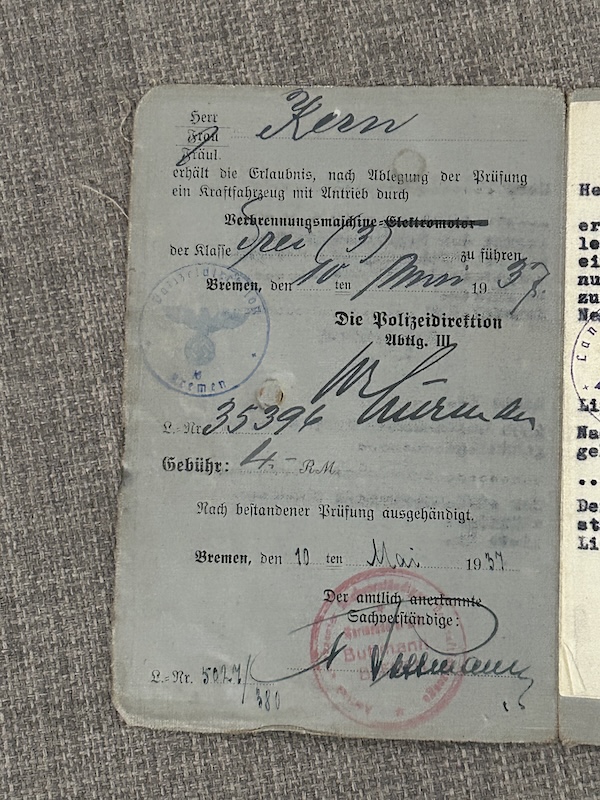 Herr
Frau
Fräul.
Kern
erhält die Erlaubnis, nach Ablegung der Prüfung
ein Kraftfahrzeug mit Antrieb durch
Verbrennungsmaschine-Elektromotor
der Klasse Drei (3) zu führen
Bremen, den 10 ten Mai 1937.
Die Polizeidirektion
Abtlg. III
L.-Nr. 35396
Gebühr: 4.- RM.
Nach bestandener Prüfung ausgehändigt.
Bremen, den 10 ten Mai 1937
Der amtlich anerkannte
Sachverständige:
L.-Nr. 5027/
380
Polizeidirektion
Bremen
He
er
le
ei
nu
zu
Ne
Lan
Li
Na
ge
..
De
st
Li